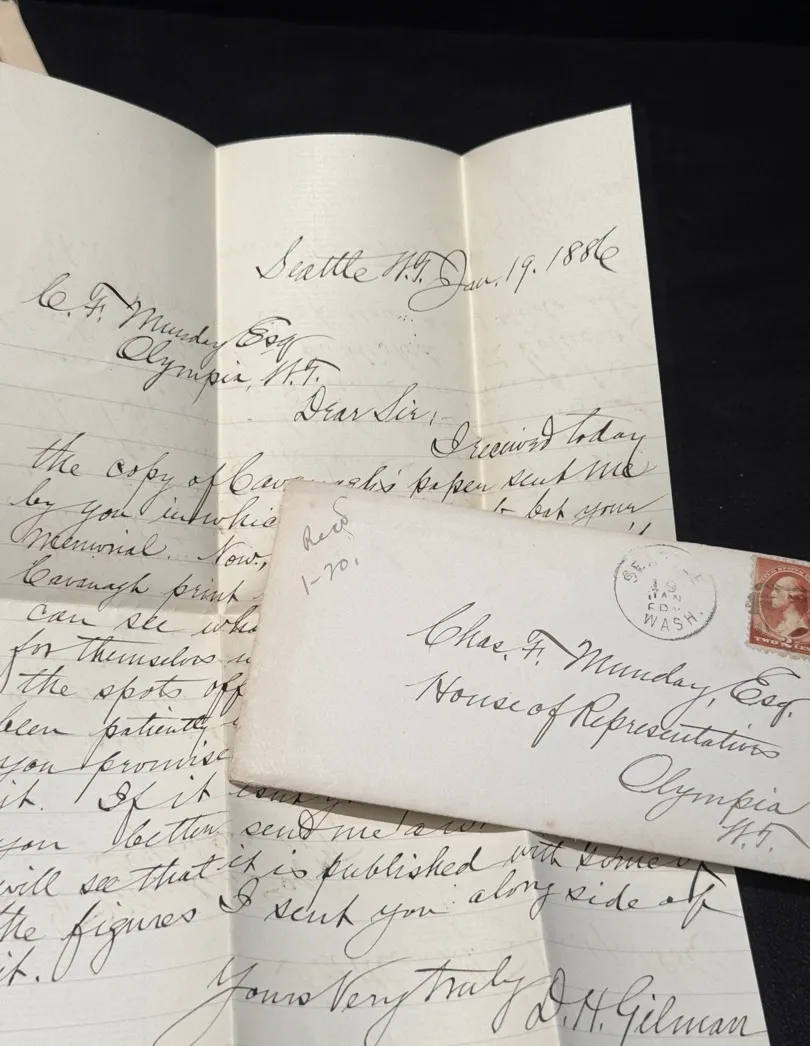 Seattle W.T. Jan. 19. 1886
C. F. Munday Esq
Olympia, W.T.
Dear Sir;
I received today
the copy of Cavanagh's paper sent me
by you in whic
bat your
Memorial. Now,
Cavanagh print
can see wha
for themselves
the spots off
been patiently
you promise
it. If it isn't
you better send me a
will see that it is published with some of
the figures I sent you along side of
it.
Yours Very truly
D. H. Gilman
Recd
1-20.
SEATTLE
19
JAN
WASH.
TWO CENTS
Chas. F. Munday, Esq.
House of Representatives
Olympia
W.T.